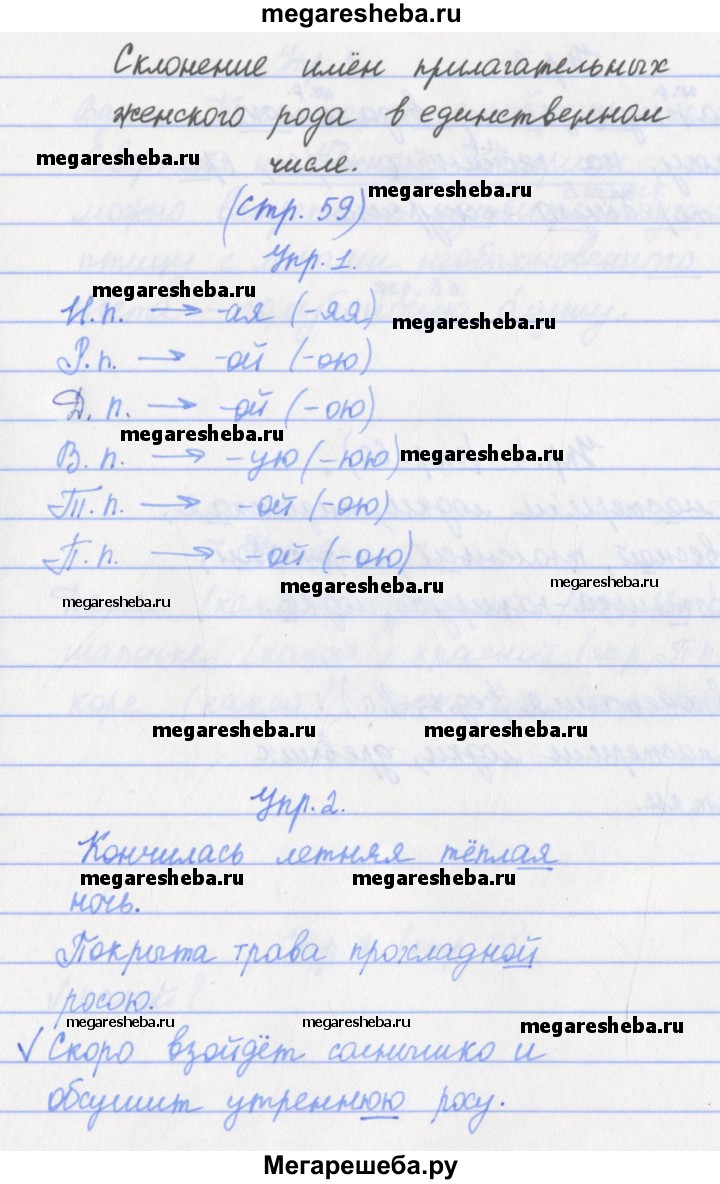 megaresheba.ru
Склонение имён прилагательных
женского рода в единственном
megaresheba.ru
числе.
megaresheba.ru
(стр. 59)
Упр. 1.
megaresheba.ru
И. п. → -ая (-яя)
megaresheba.ru
Р. п. → -ой (-ою)
Д. п. → -ой (-ою)
megaresheba.ru
В. п. → -ую (-юю)
megaresheba.ru
Т. п. → -ой (-ою)
П. п. → -ой (-ою)
megaresheba.ru
megaresheba.ru
megaresheba.ru
megaresheba.ru
megaresheba.ru
Упр. 2.
Кончилась летняя тёплая
megaresheba.ru
megaresheba.ru
ночь.
Покрыта трава прохладной
росою.
megaresheba.ru
megaresheba.ru
megaresheba.ru
√ Скоро взойдёт солнышко и
обсушит утреннюю росу.
Мегарешеба.ру